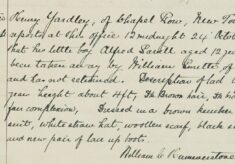 Henry Yardley, of Chapel Row, New Tow
aports at this office 12 midnight 24 Octob
that his little boy Alfred Sackell aged 12 year
been taken away by William Smith of
and has not returned. Description of lad 12
year height about 4ft, Dk Brown hair, Dk
fair complexion, Dressed in a brown
suit, white straw hat, woollen scarf, black s
and new pair of lace up boots.
William C